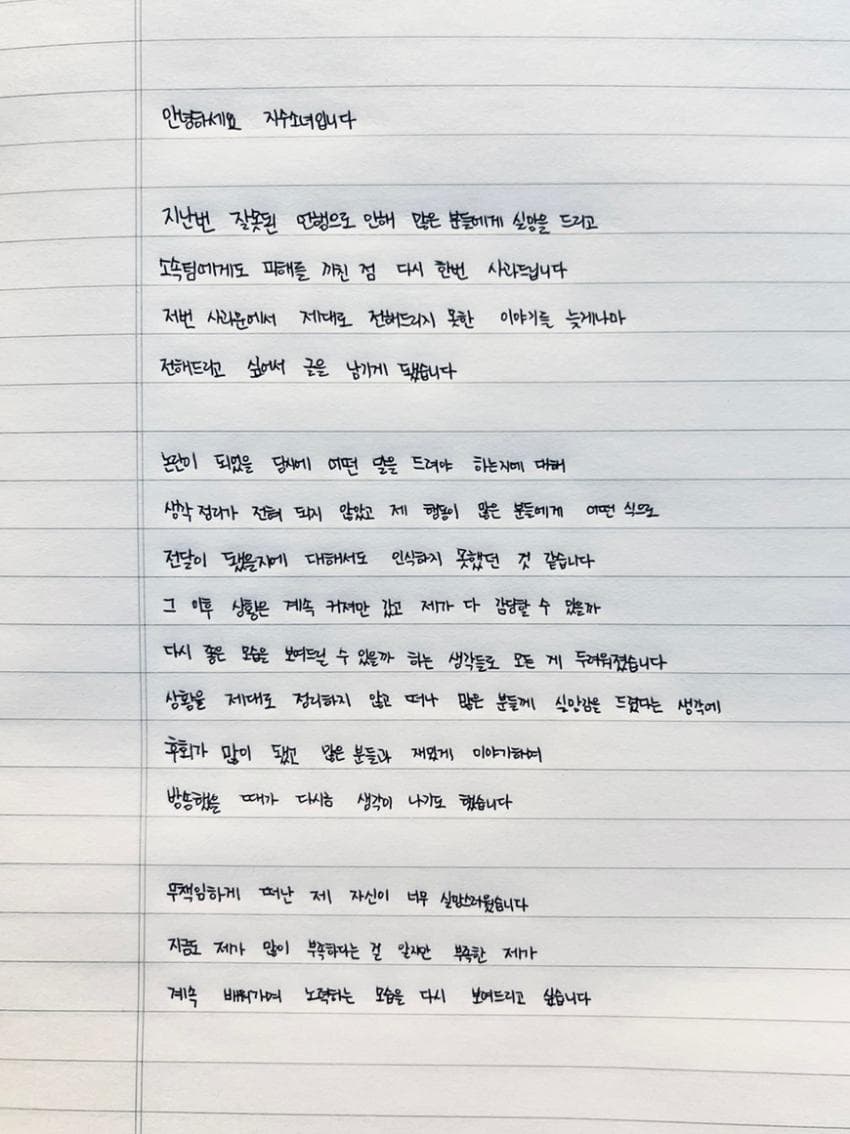 안녕하세요 지수소녀입니다
지난번 잘못된 언행으로 인해 많은 분들에게 실망을 드리고
소속팀에게도 피해를 끼친 점 다시 한번 사과드립니다
저번 사과문에서 제대로 전해드리지 못한 이야기를 늦게나마
전해드리고 싶어서 글을 남기게 됐습니다
논란이 되었을 당시에 어떤 말을 드려야 하는지에 대해
생각 정리가 전혀 되지 않았고 제 행동이 많은 분들에게 어떤 식으로
전달이 됐을지에 대해서도 인식하지 못했던 것 같습니다
그 이후 상황은 계속 커져만 갔고 제가 다 감당할 수 있을까
다시 좋은 모습을 보여드릴 수 있을까 하는 생각들로 모든 게 두려워졌습니다
상황을 제대로 정리하지 않고 떠나 많은 분들께 실망감을 드렸다는 생각에
후회가 많이 됐고 많은 분들과 재밌게 이야기하며
방송했을 때가 다시금 생각이 나기도 했습니다
무책임하게 떠난 제 자신이 너무 실망스러웠습니다
지금도 제가 많이 부족하다는 걸 알지만 부족한 제가
계속 배워가며 노력하는 모습을 다시 보여드리고 싶습니다